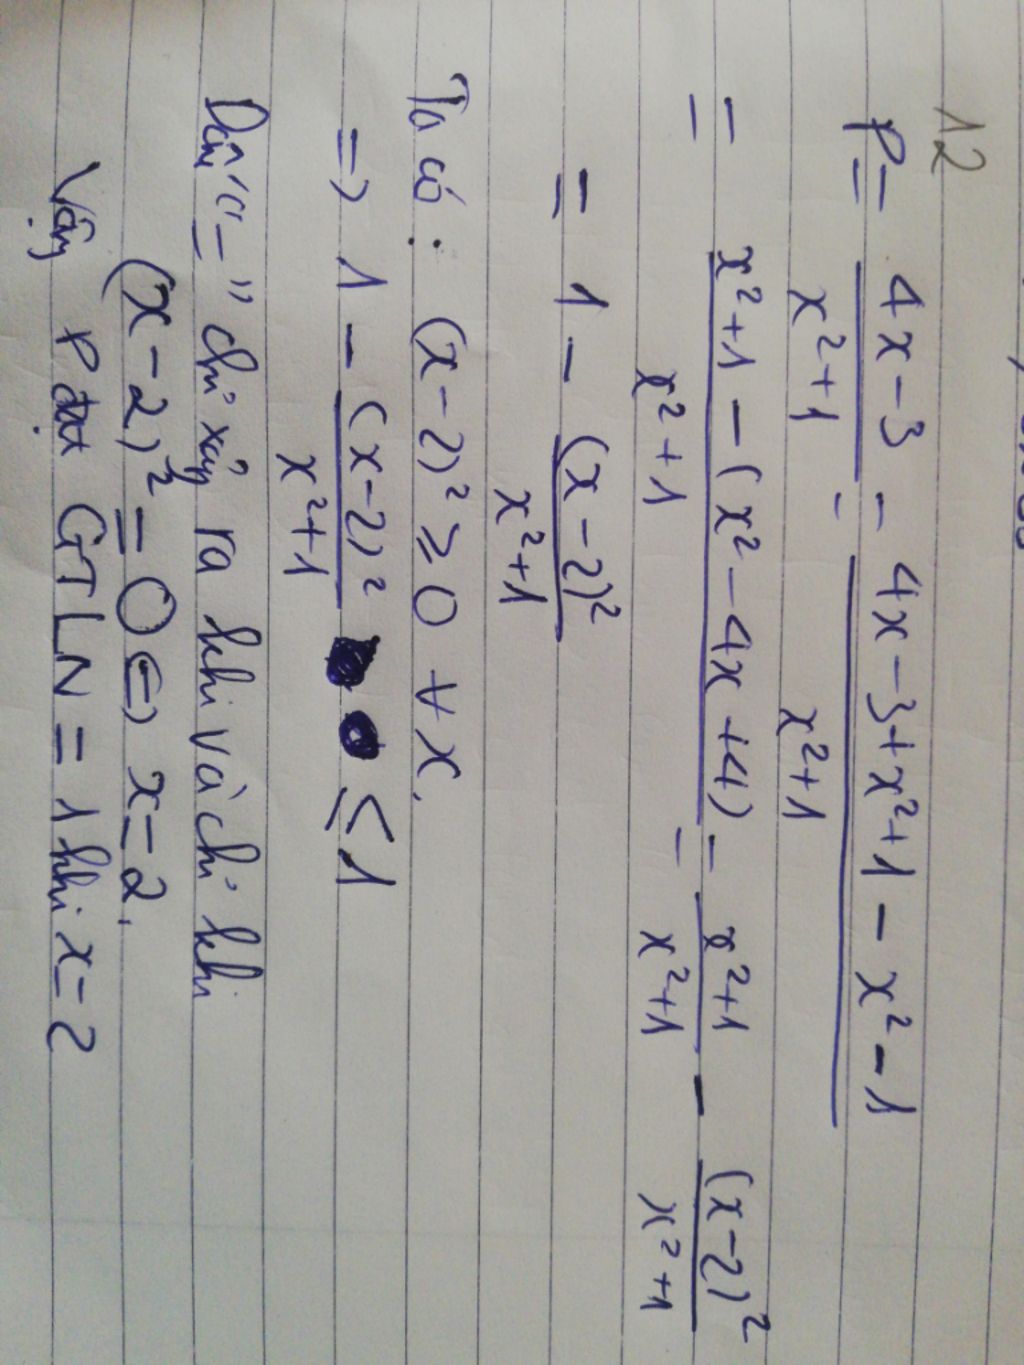 12
P = (4x - 3)/(x² + 1) = (4x - 3 + x² + 1 - x² - 1)/(x² + 1)
= (x² + 1 - (x² - 4x + 4))/(x² + 1) = (x² + 1)/(x² + 1) - (x - 2)²/(x² + 1)
= 1 - (x - 2)²/(x² + 1)
Ta có : (x - 2)² ≥ 0 ∀ x.
=> 1 - (x - 2)²/(x² + 1) ≤ 1
Dấu "=" chỉ xảy ra khi và chỉ khi
(x - 2)² = 0 <=> x = 2.
Vậy P đạt GTLN = 1 khi x = 2